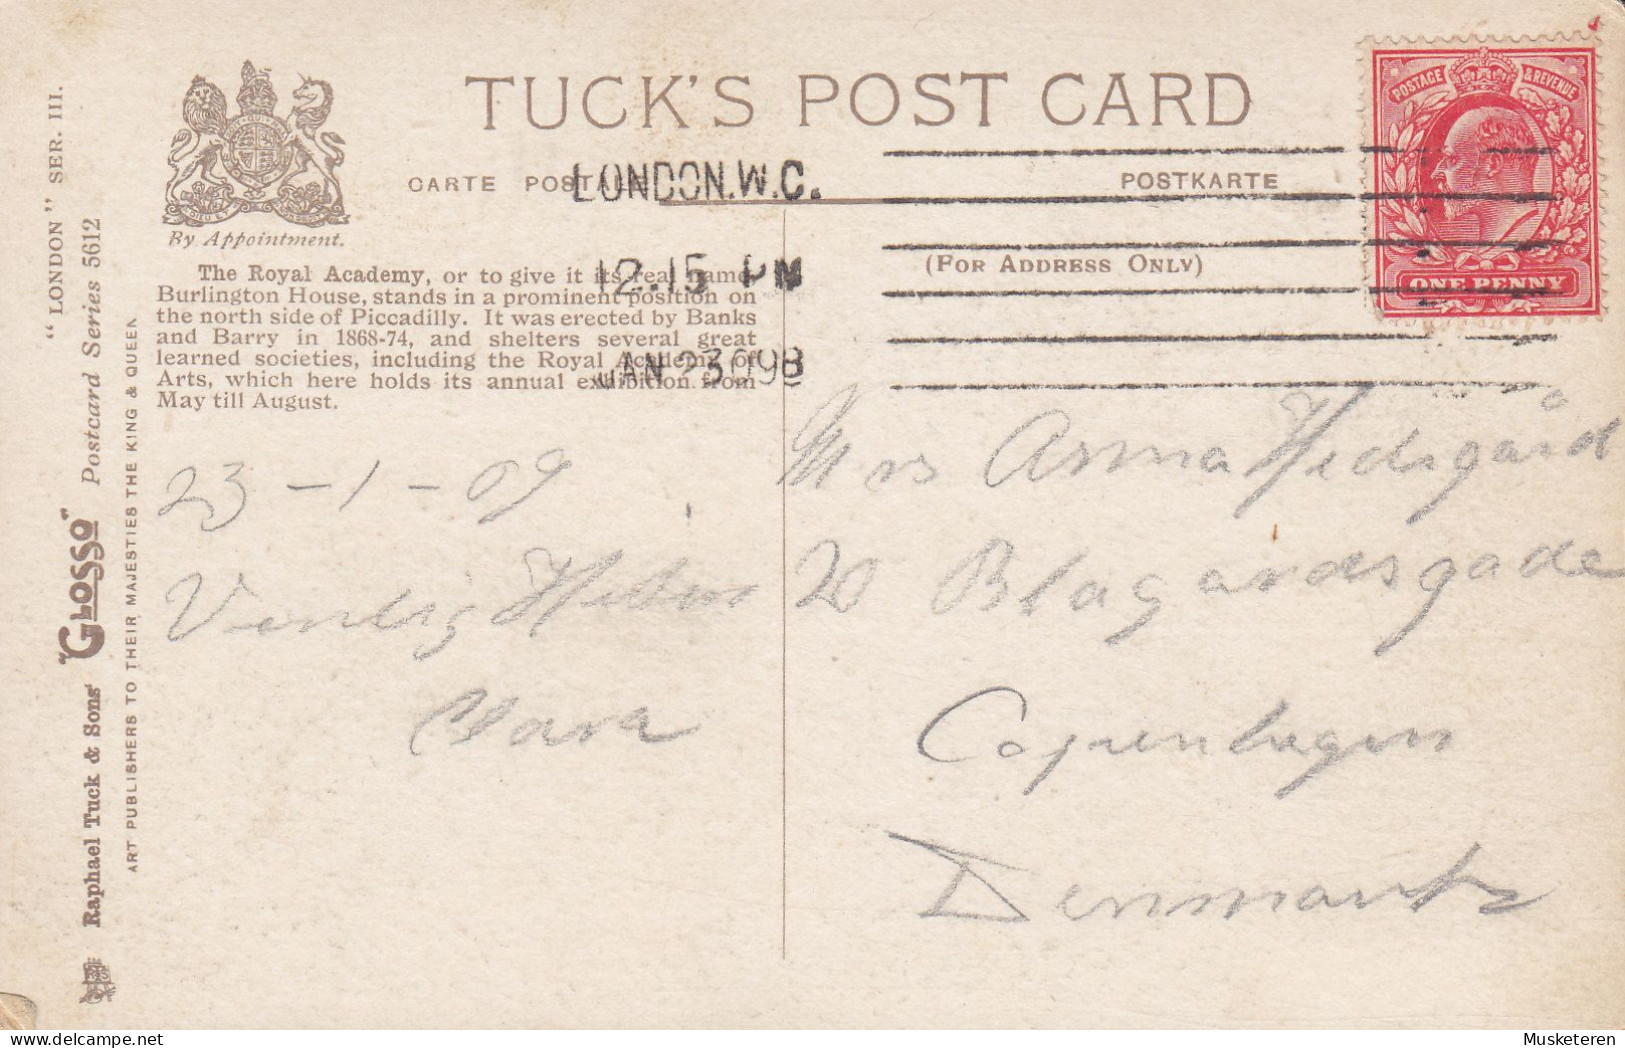 TUCK'S POST CARD
CARTE POSTALE
POSTKARTE
(FOR ADDRESS ONLY)
LONDON.W.C.
12.15 PM
JAN 23 09B
POSTAGE & REVENUE
ONE PENNY
By Appointment.
The Royal Academy, or to give it its real name
Burlington House, stands in a prominent position on
the north side of Piccadilly. It was erected by Banks
and Barry in 1868-74, and shelters several great
learned societies, including the Royal Academy of
Arts, which here holds its annual exhibition from
May till August.
"LONDON" SER. III.
Raphael Tuck & Sons' "GLOSSO" Postcard Series 5612
ART PUBLISHERS TO THEIR MAJESTIES THE KING & QUEEN
23-1-09
Venlig Hilsen
Mrs Anna Hedegård
20 Blagardsgade
Copenhagen
Denmark
Musketeren